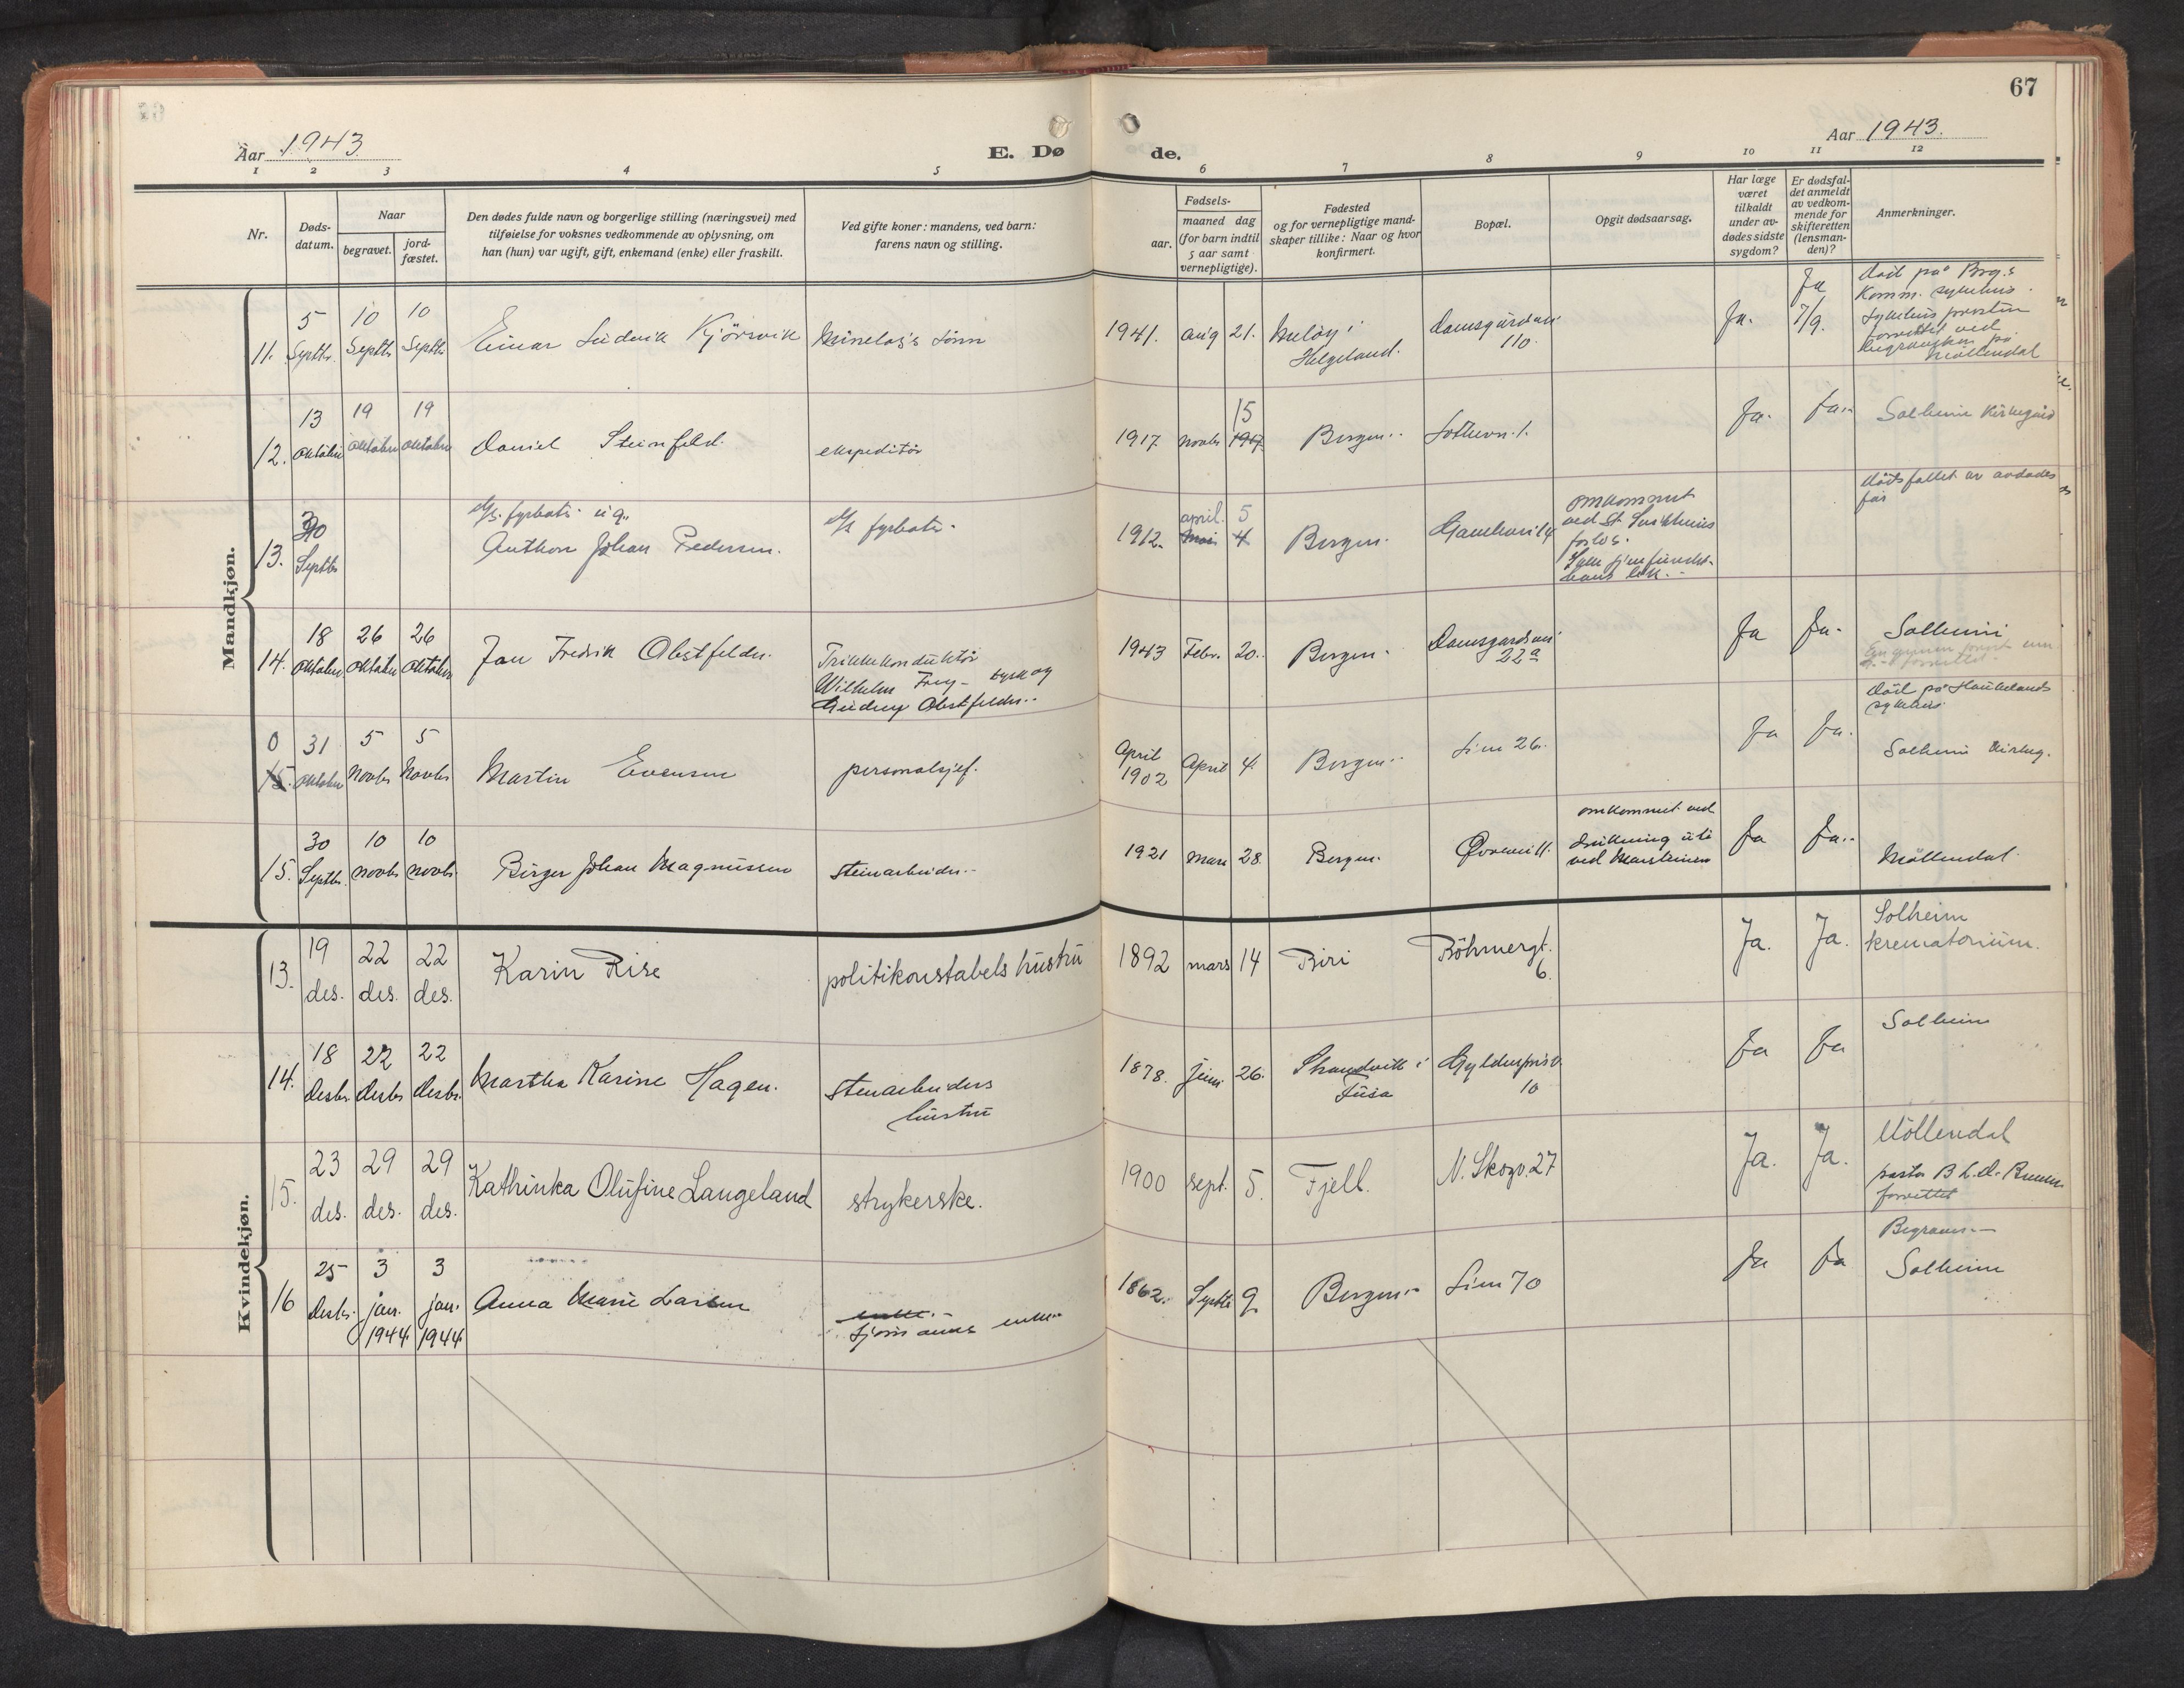 67
Aar 1943
E. Dø de.
Aar 1943.
1 2 3 4 5 6 7 8 9 10 11 12
Nr.
Døds-
datum.
Naar
begravet.
jord-
fæstet.
Den dødes fulde navn og borgerlige stilling (næringsvei) med
tilføielse for voksnes vedkommende av oplysning, om
han (hun) var ugift, gift, enkemand (enke) eller fraskilt.
Ved gifte koner: mandens, ved barn:
farens navn og stilling.
Fødsels-
aar.
maaned dag
(for barn indtil
5 aar samt
vernepligtige).
Fødested
og for vernepligtige mand-
skaper tillike: Naar og hvor
konfirmert.
Bopæl.
Opgit dødsaarsag.
Har læge
været
tilkaldt
under av-
dødes sidste
sygdom?
Er dødsfal-
det anmeldt
av vedkom-
mende for
skifteretten
(lensman-
den)?
Anmerkninger.
Mandkjøn.
11. 5 Septbr. 10 Septbr 10 Septbr Einar Ludvik Kjørsvik sønn 1941. aug 21. i Helgeland. Damsgårdsvei 110. Ja. Ja 7/9.
død på Brg.s
Komm. sykehus.
forrettet ved
begravelsen på
Møllendal
12. 13 oktober 19 oktober 19 oktober Daniel Steinfeld. ekspeditør 1917. novbr 15 1917. Bergen. Ja. Ja. Solheim Kirkegård
13. 30 Septbr fyrbøter ug.
Anthon Johan Pedersen. fyrbøter. 1912. april 5 Mai 4 Bergen.
omkommet
ved
forlis.
hans lik.
dødsfallet av avdødes
far
14. 18 oktober 26 oktober 26 oktober Jan Fredrik Obstfelder. Trikkekonduktør
Wilhelm Frey- tysk og
Obstfelder. 1943 Febr. 20. Bergen. Damsgaardsvei 22a Ja Ja. Solheim
0 15. 31 oktober 5 novbr 5 Novbr Martin Evensen personalsjef. April 1902 April 4. Bergen. 26. Ja Ja.
død på Haukelands
sykehus.
Solheim Kirkeg.
15. 30 Septbr. 10 novbr 10 novbr. Birger Johan Magnussen steinarbeider. 1921 mars 28. Bergen.
omkommet ved
drukning ute
ved Marsteinen
Ja Ja. Møllendal.
Kvindekjøn.
13. 19 des. 22 des. 22 des. Karin Rise politikonstabels hustru 1892 mars 14 Biri Böhmergt. 6. Ja. Ja. Solheim
krematorium.
14. 18 Desbr. 22 Desbr 22 Desbr. Martha Karine Hagen. stenarbeiders
hustru 1878. juni 26. Strandvik i
Fusa Gyldenprisv.
10 Ja Ja Solheim
15. 23 des. 29 des. 29 des. Kathinka Olufine Langeland strykerske. 1900 sept. 5. Fjell. N. Skogv. 27 Ja. Ja. Møllendal
forrettet
16 25 Desbr. 3 jan. 1944 3 jan. 1944 Anna Marie Larsen enke.
1862. Septbr 9. Bergen. 70 Ja Ja Solheim